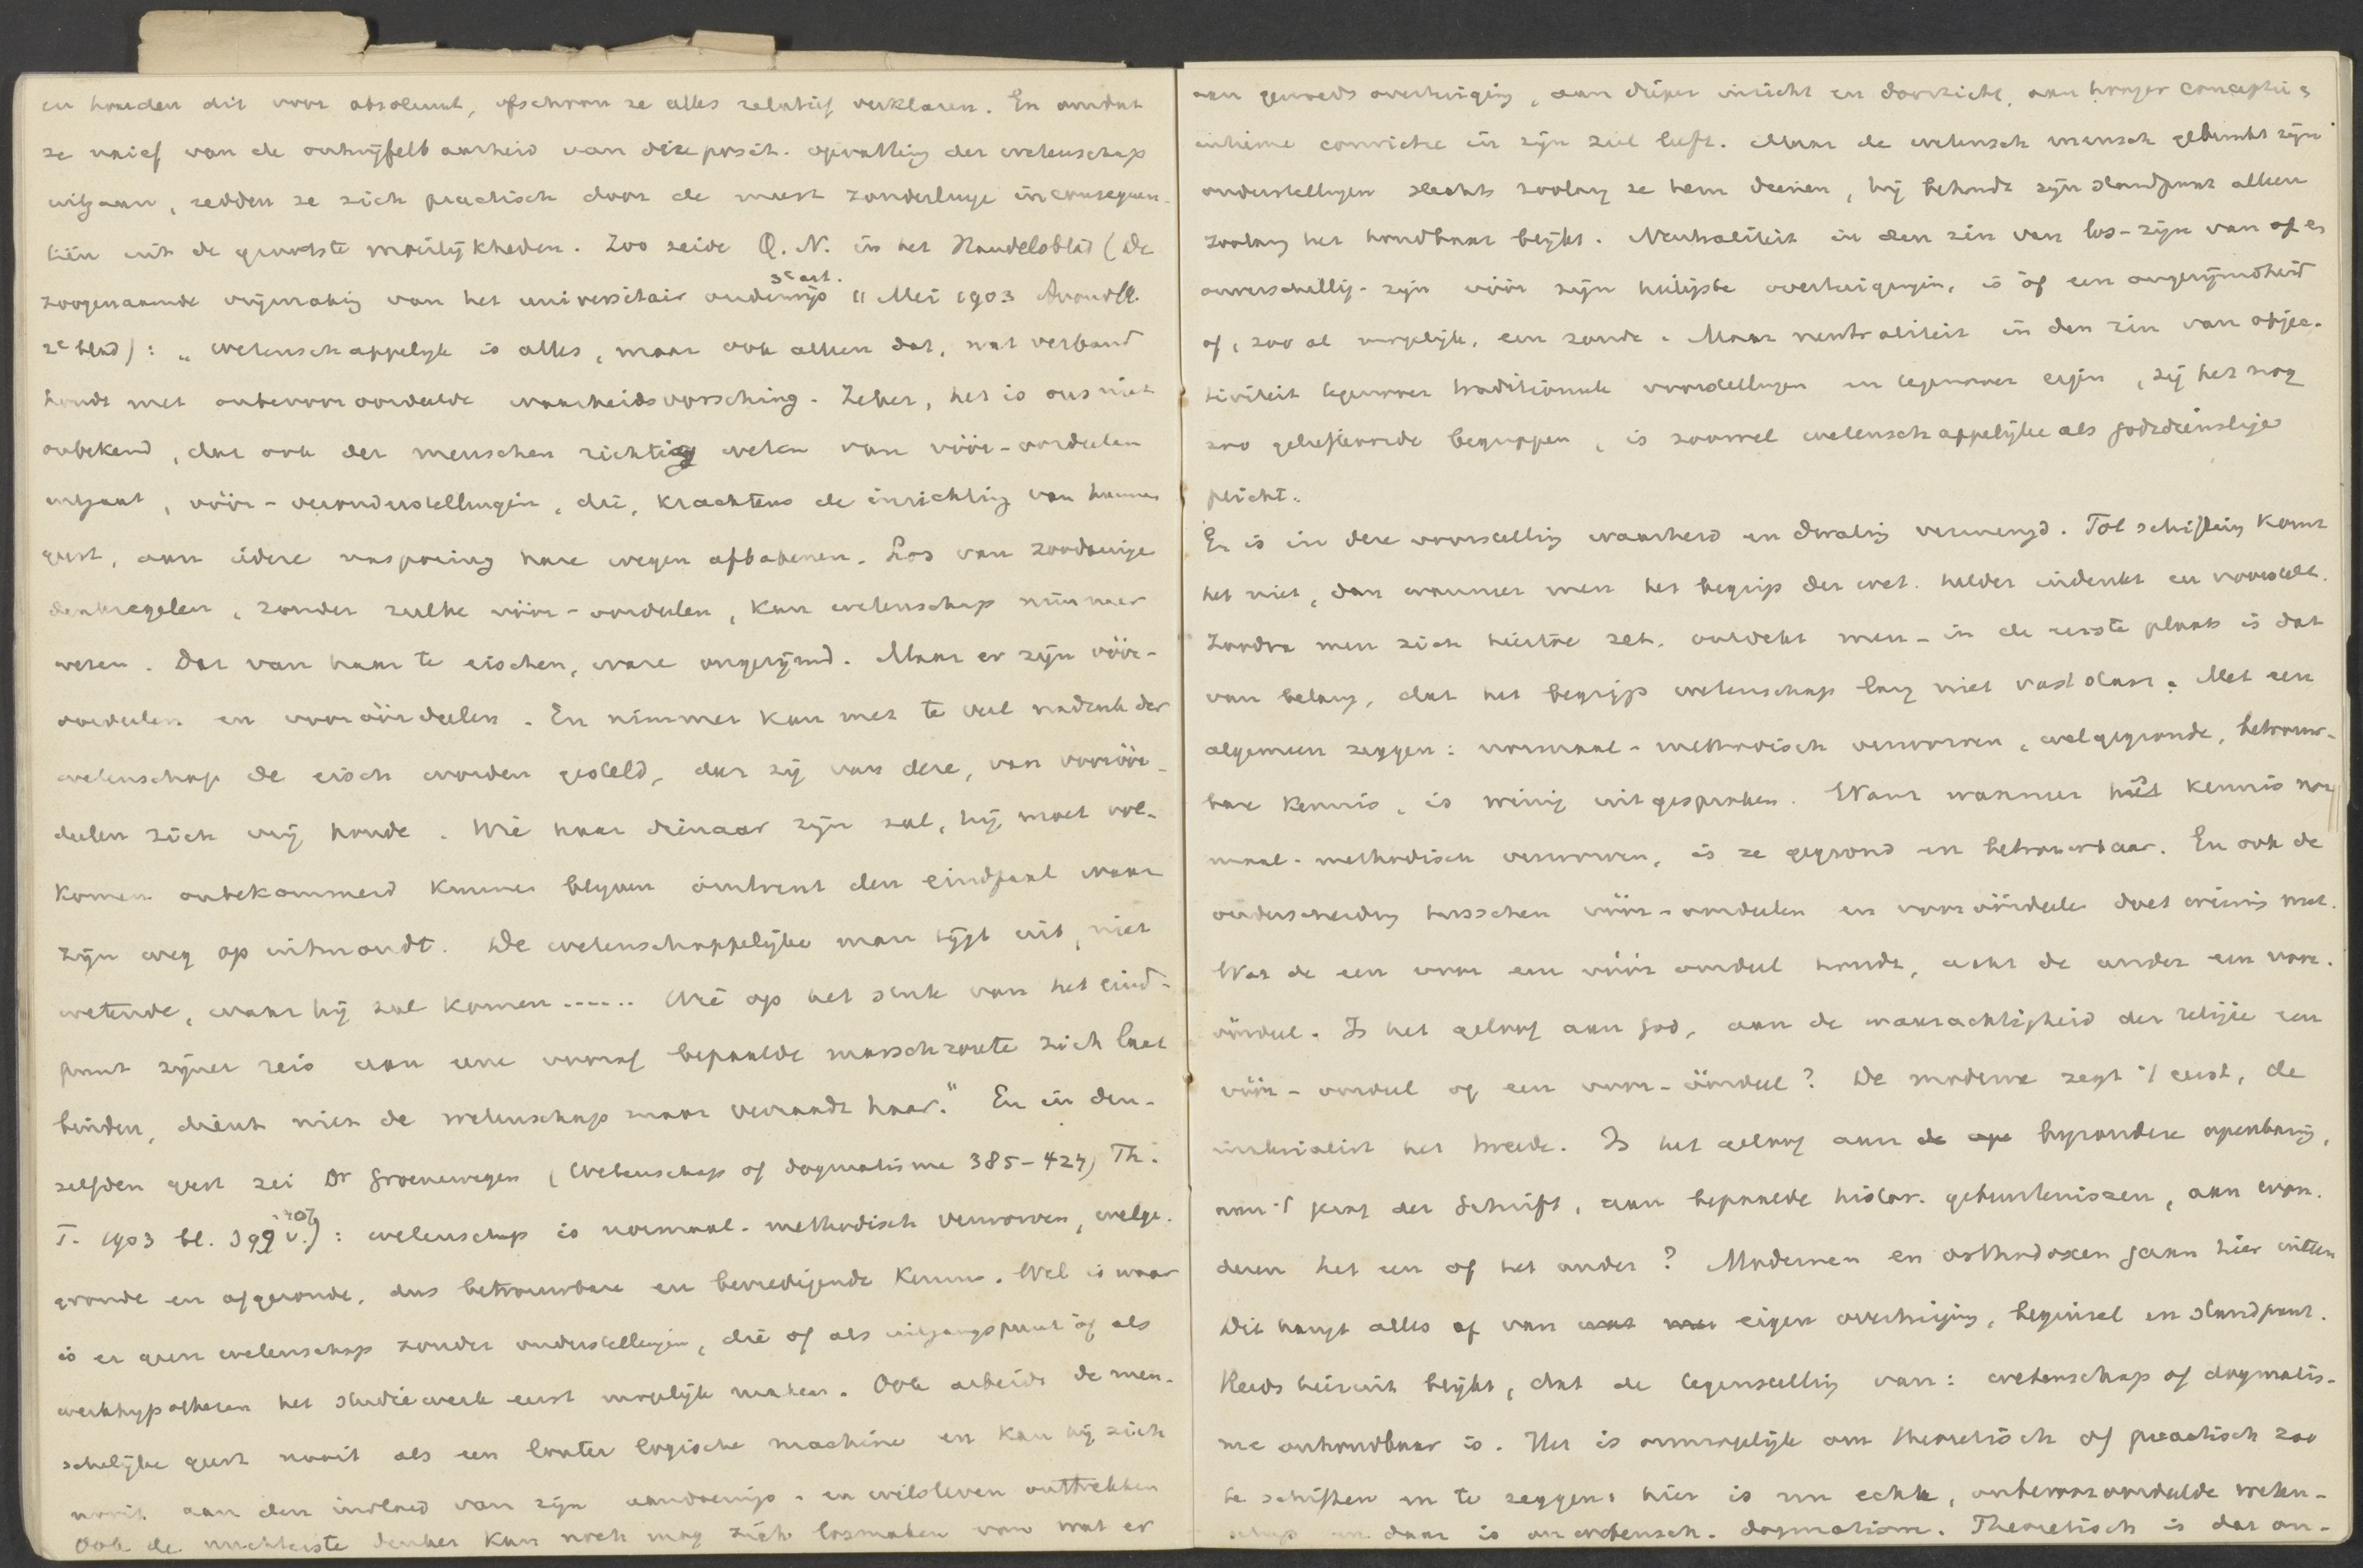 en houden dit voor absoluut, ofschoon ze alles relatief verklaren. En omdat
ze naief van de ontwijfelbaarheid van deze posit. opvatting der wetenschap
uitgaan, redden ze zich practisch door de meest zonderlinge inconsequen-
tiën uit de grootste moeilijkheden. Zoo zeide Q. N. in het Handelsblad (De
zoogenaamde vrijmaking van het universitair onderwijs 3e art. 11 Mei 1903 Avondbl.
2e blad): „wetenschappelijk is alles, maar ook alleen dat, wat verband
houdt met onbevooroordeelde waarheidsvorsching. Zeker, het is ons niet
onbekend, dat ook der menschen richtig weten van vóór-oordeelen
uitgaat, vóór-veronderstellingen, die, krachtens de inrichting van hunnen
geest, aan iedere nasporing hare wegen afbakenen. Los van zoodanige
denkregelen, zonder zulke vóór-oordeelen, kan wetenschap nimmer
wezen. Dat van haar te eischen, ware ongerijmd. Maar er zijn vóór-
oordeelen en vooróórdeelen. En nimmer kan met te veel nadruk der
wetenschap de eisch worden gesteld, dat zij van deze, van vooróór-
deelen zich vrij houde. Wie haar dienaar zijn zal, hij moet vol-
komen onbekommerd kunnen blijven omtrent den eindpaal waar
zijn weg op uitmondt. De wetenschappelijke man tijgt uit, niet
wetende, waar hij zal komen...... Wie op het stuk van het eind-
punt zijner reis aan eene vooraf bepaalde marschroute zich laat
binden, dient niet de wetenschap maar verraadt haar." En in den-
zelfden geest zei Dr Groenewegen (Wetenschap of dogmatisme 385-424) Th.
T. 1903 bl. 399 v. 407): wetenschap is normaal-methodisch verworven, welge-
gronde en afgeronde, dus betrouwbare en bevredigende kennis. Wel is waar
is er geen wetenschap zonder onderstellingen, die of als uitgangspunt óf als
werkhypothesen het studiewerk eerst mogelijk maken. Ook arbeidt de men-
schelijke geest nooit als een louter logische machine en kan hij zich
nooit aan den invloed van zijn aandoenings- en wilsleven onttrekken
Ook de nuchterste denker kan noch mag zich losmaken van wat er
aan gemoedsovertuiging, aan dieper inzicht en doorzicht, aan hooger conceptie &
intieme convictie in zijn ziel leeft. Maar de wetensch. mensch gebruikt zijn
onderstellingen slechts zoolang ze hem dienen, hij behoudt zijn standpunt alleen
zoolang het houdbaar blijkt. Neutraliteit in den zin van los-zijn van of
onverschillig-zijn vóór zijn heiligste overtuigingen, is óf een ongerijmdheid
of, zoo al mogelijk, een zonde. Maar neutraliteit in den zin van objec-
tiviteit tegenover traditioneele voorstellingen en tegenover eigen, zij het nog
zoo geliefkoosde begrippen, is zoowel wetenschappelijke als godsdienstige
plicht.
Er is in deze voorstelling waarheid en dwaling vermengd. Tot schifting komt
het niet, dan wanneer men het begrip der wet. helder indenkt en voorstelt.
Zoodra men zich hiertoe zet, ontdekt men - in de eerste plaats is dat
van belang, dat het begrip wetenschap lang niet vast staat. Met een
algemeen zeggen: normaal-methodisch verworven, welgegronde, betrouw-
bare kennis, is weinig uitgesproken. Want wanneer is kennis nor-
maal-methodisch verworven, is ze gegrond en betrouwbaar. En ook de
onderscheiding tusschen vóór-oordeelen en vooróórdeelen doet weinig nut.
Wat de een voor een vóór oordeel houdt, acht de ander een voor-
óórdeel. Is het geloof aan God, aan de waarachtigheid der religie een
vóór-oordeel of een voor-óórdeel? De moderne zegt 't eerst, de
materialist het tweede. Is het geloof aan bijzondere openbaring,
aan 't gezag der Schrift, aan bepaalde histor. gebeurtenissen, aan won-
deren het een of het ander? Modernen en orthodoxen gaan hier uiteen
Dit hangt alles af van eigen overtuiging, beginsel en standpunt.
Reeds hieruit blijkt, dat de tegenstelling van: wetenschap of dogmatis-
me onhoudbaar is. Het is onmogelijk om theoretisch of practisch zoo
te schiften en te zeggen: hier is nu echte, onbevooroordeelde weten-
schap en daar is onwetensch. dogmatisme. Theoretisch is dat on-